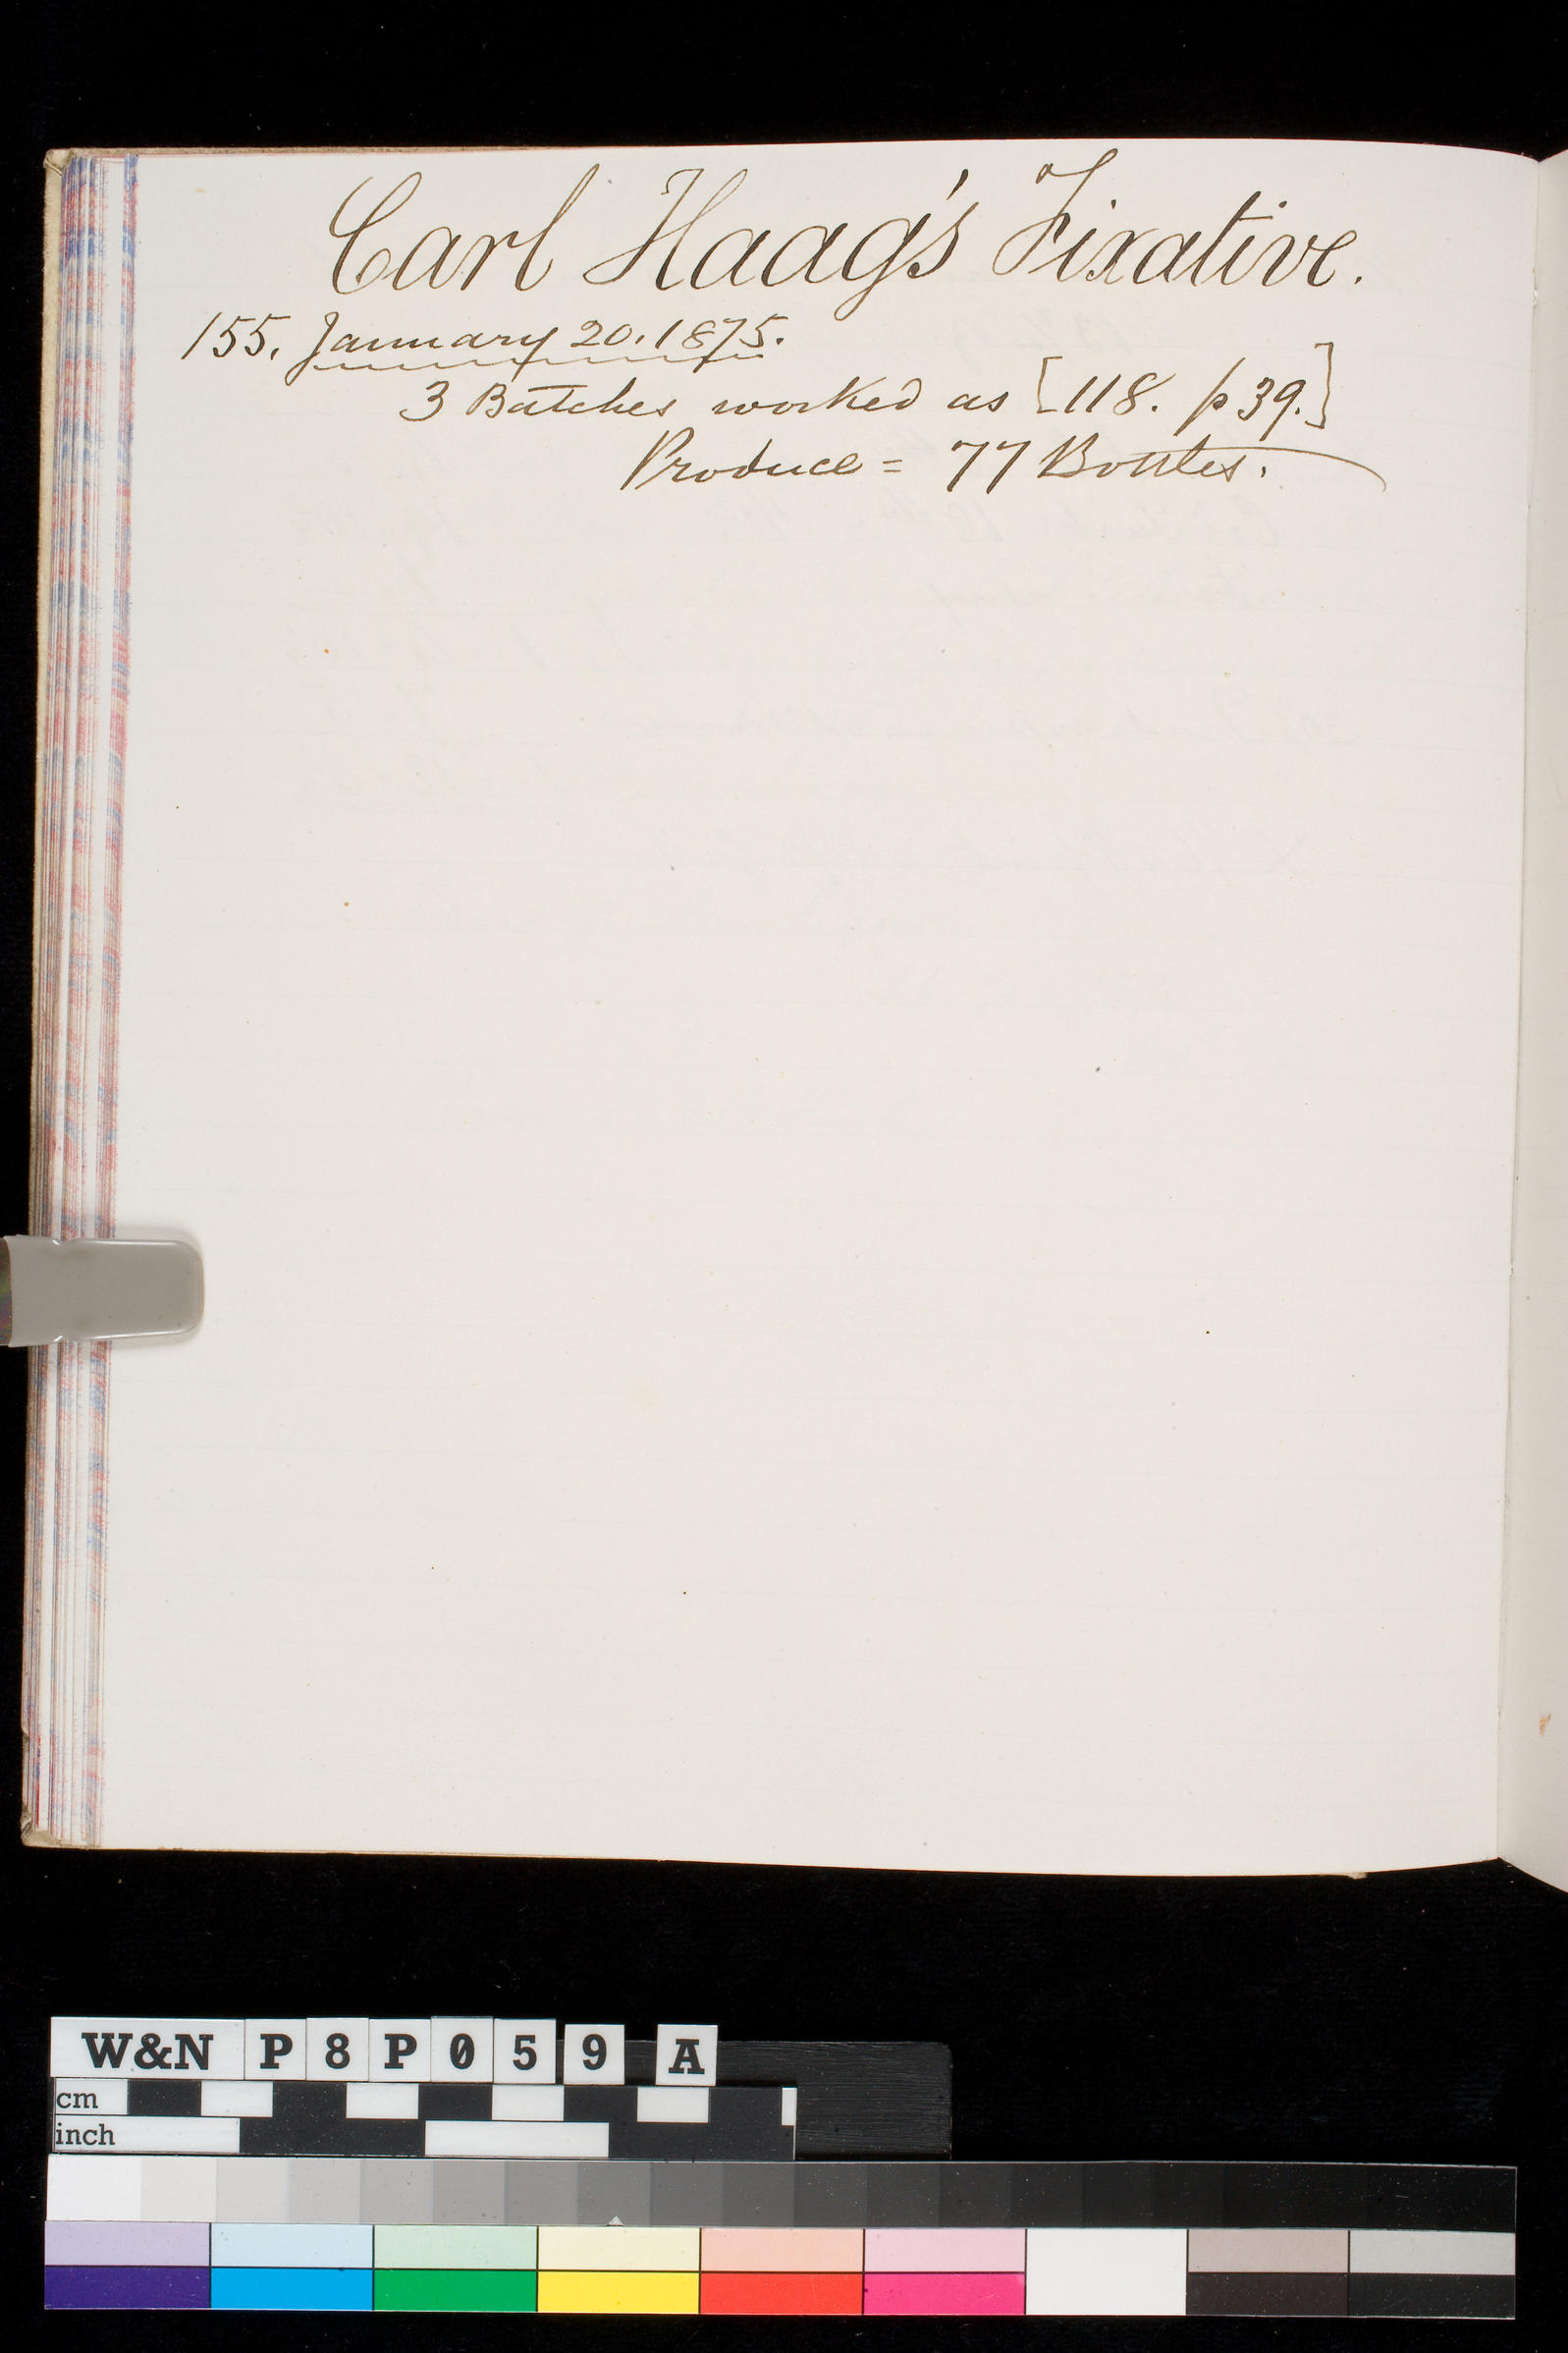 Carl Haag's Fixative.
155. January 20. 1875.
3 Batches worked as [118. p 39.]
Produce = 77 Bottles.
W&N P8P059 A
cm
inch